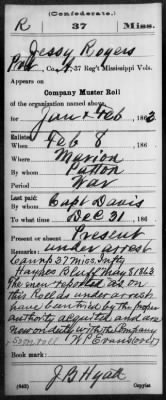 (Confederate.)
R 37 Miss.
Jessy Rogers
Pvt, Co. , 37 Reg't Mississippi Vols.
Appears on
Company Muster Roll
of the organization named above,
for Jan & Feb, 1862
Enlisted:
When Feb 8, 186
Where Marion
By whom Patton
Period War
Last paid:
By whom Capt Davis
To what time Dec 31, 186
Present or absent Present
under arrest
Camp 37 Miss Infty
Haynes Bluff May 8 1863
The men reported as on
this Roll as under arrest
have been tried by the proper
authority acquitted and are
now on duty with the Company
W P Evans Lovers
Book mark:
J B Hyatt
(642) Copyist.